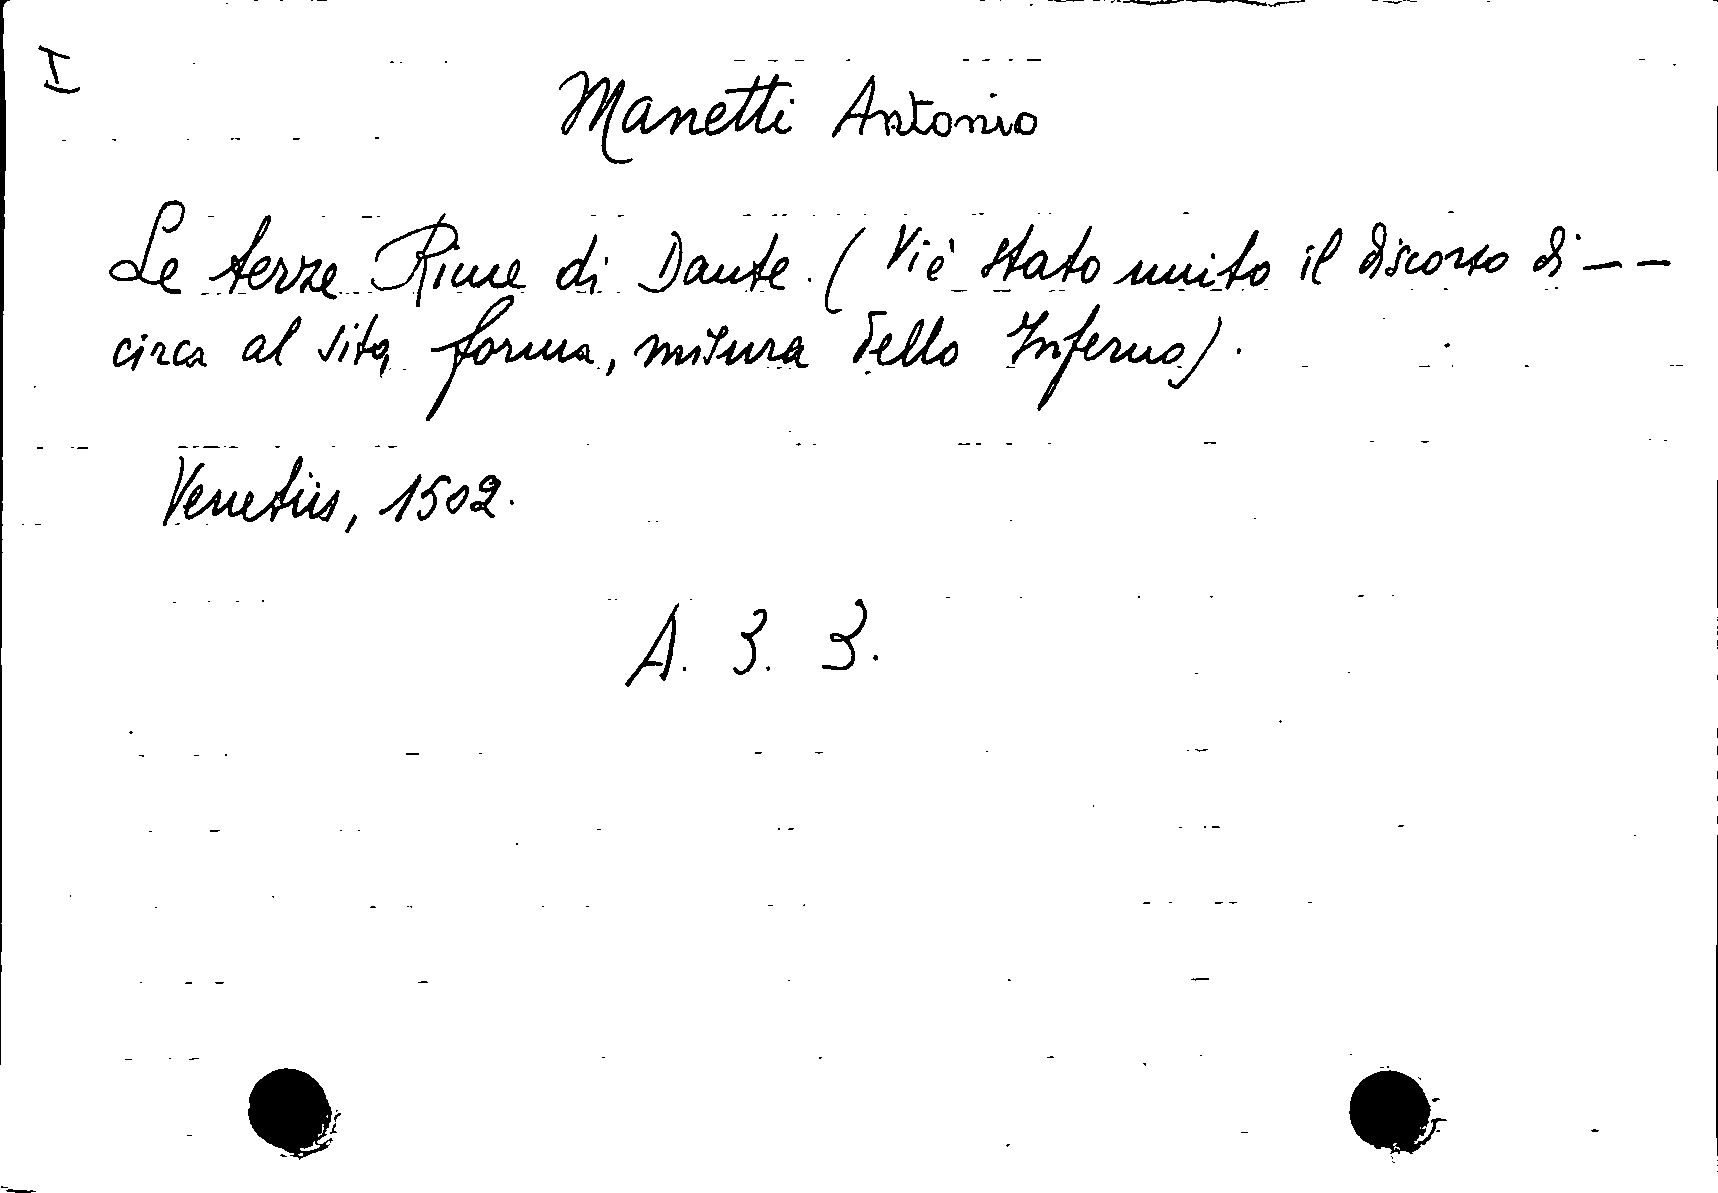 I
Manetti Antonio
Le terze Rime di Dante. (Vi è stato unito il discorso di --
circa al sito, forma, misura dello Inferno).
Venetiis, 1502.
A. 3. 3.